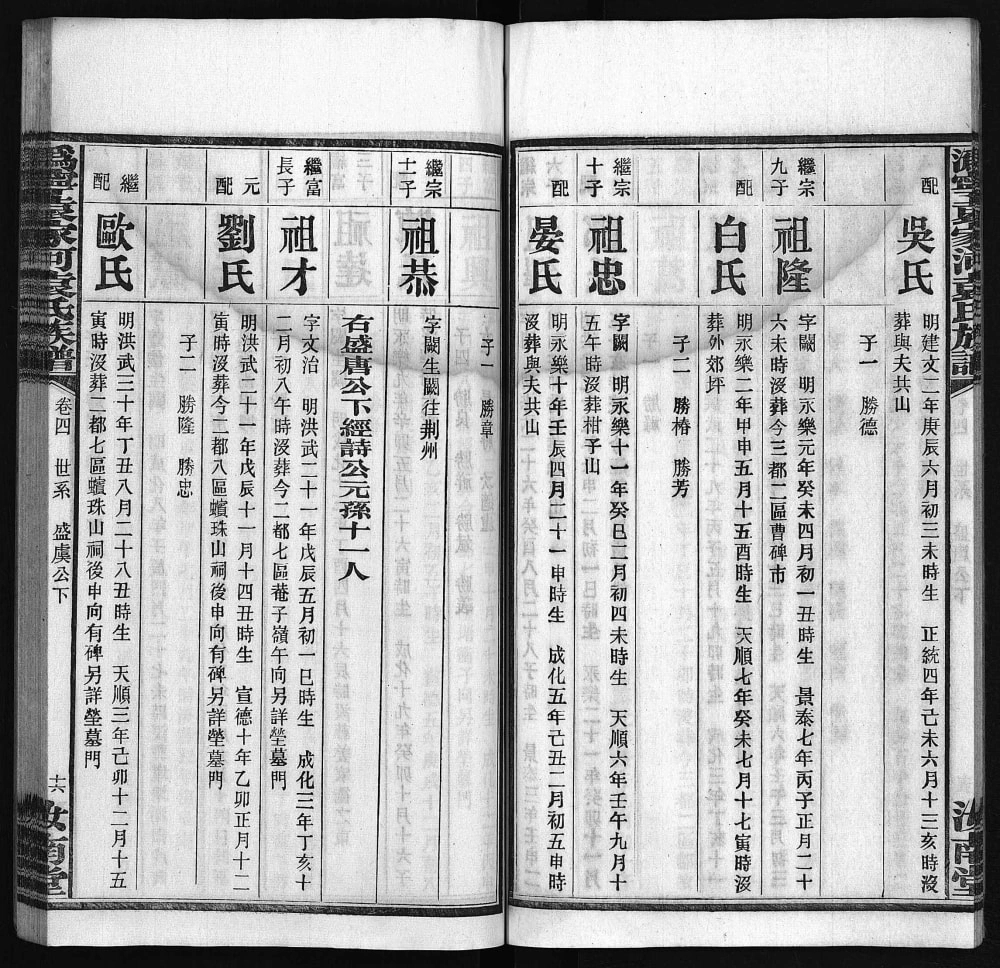 配
吳氏
明建文二年庚辰六月初三未時生　正統四年己未六月十三亥時沒
葬與夫共山
子一　勝德
繼宗
九子
祖隆
字闕　明永樂元年癸未四月初一丑時生　景泰七年丙子正月二十
六未時沒葬今三都二區曹碑市
配
白氏
明永樂二年甲申五月十五酉時生　天順七年癸未七月十七寅時沒
葬外郊坪
子二　勝椿　勝芳
繼宗
十子
祖忠
字闕　明永樂十一年癸巳二月初四未時生　天順六年壬午九月十
五午時沒葬柑子山
配
晏氏
明永樂十年壬辰四月二十一申時生　成化五年己丑二月初五申時
沒葬與夫共山
子一　勝章
繼宗
十一子
祖恭
字闕生闕往荆州
右盛唐公下經詩公元孫十一人
繼富
長子
祖才
字文治　明洪武二十一年戊辰五月初一巳時生　成化三年丁亥十
二月初八午時沒葬今二都七區菴子嶺午向另詳塋墓門
元
配
劉氏
明洪武二十一年戊辰十一月十四丑時生　宣德十年乙卯正月十二
寅時沒葬今二都八區蠙珠山祠後申向有碑另詳塋墓門
繼
配
歐氏
明洪武三十年丁丑八月二十八丑時生　天順三年己卯十二月十五
寅時沒葬二都七區蠙珠山祠後申向有碑另詳塋墓門
子二　勝隆　勝忠
爲寧袁家河袁氏族譜
卷四　世系　盛虞公下
十六
汝南堂